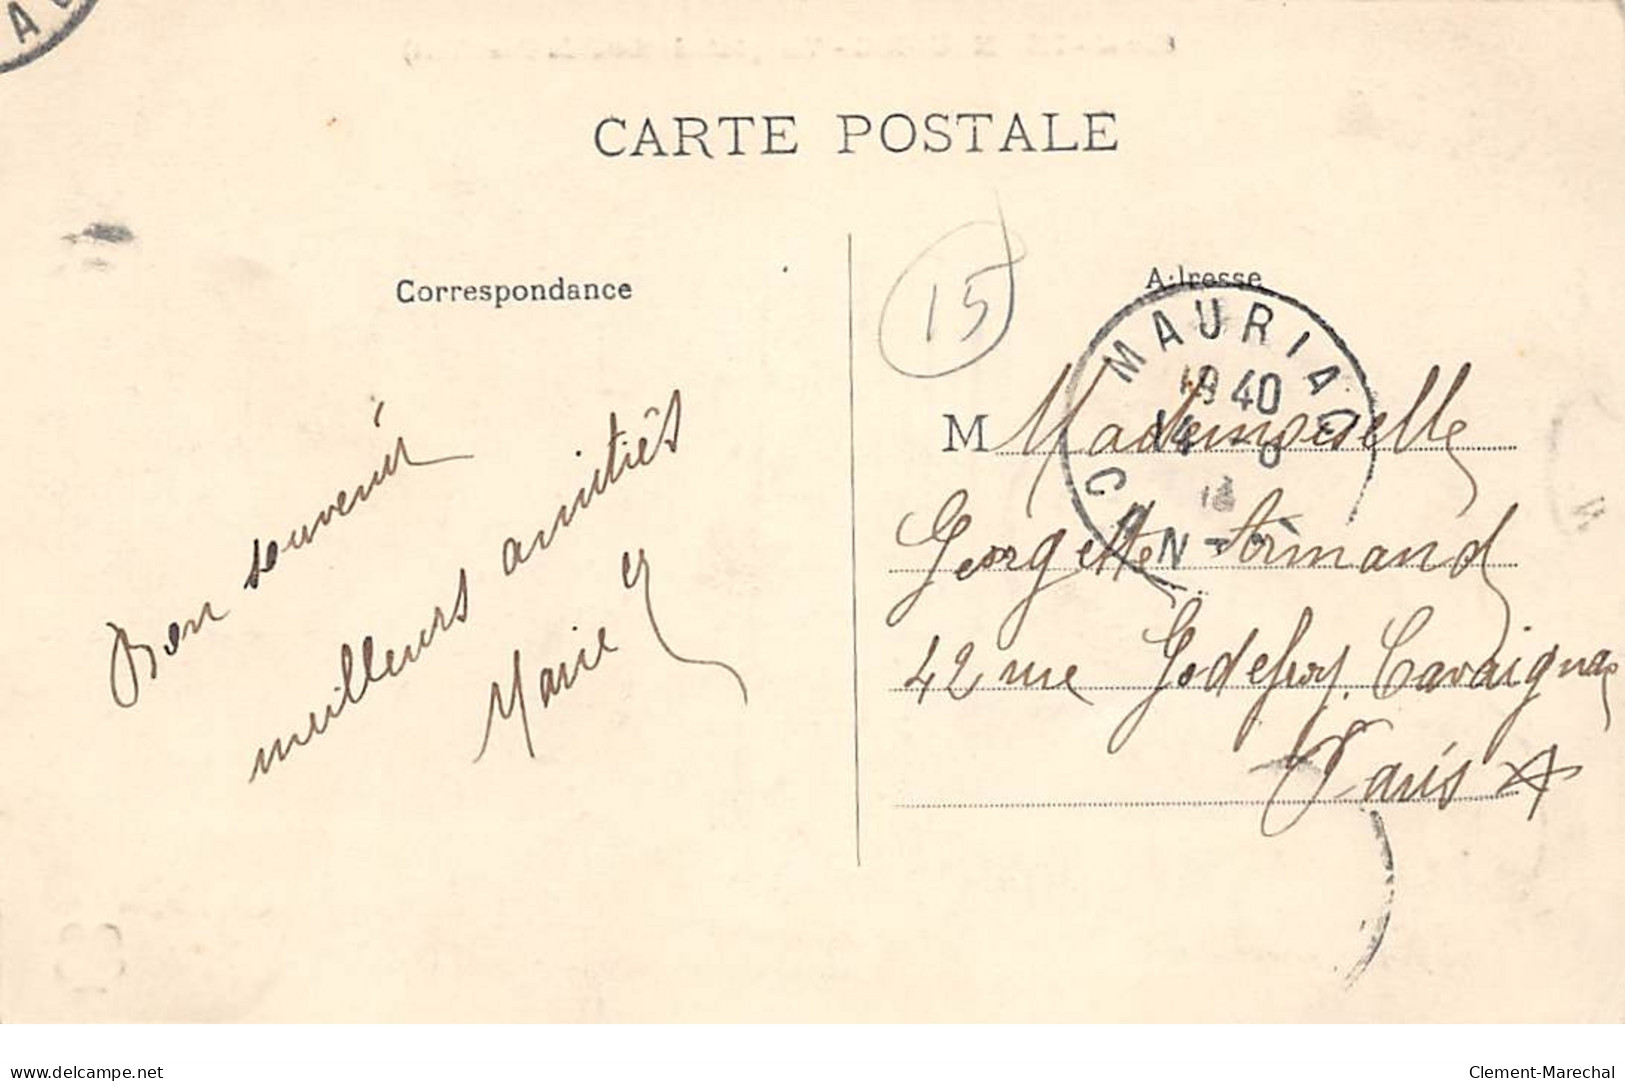 CARTE POSTALE
Correspondance
Adresse
15
MAURIAC
19 40
14 - 8
CANTAL
Bon souvenir
meilleurs amitiés
Marie
M Mademoiselle
Georgette Armand
42 rue Godefroy Cavaignac
Paris
delcampe.net
Clement-Marechal